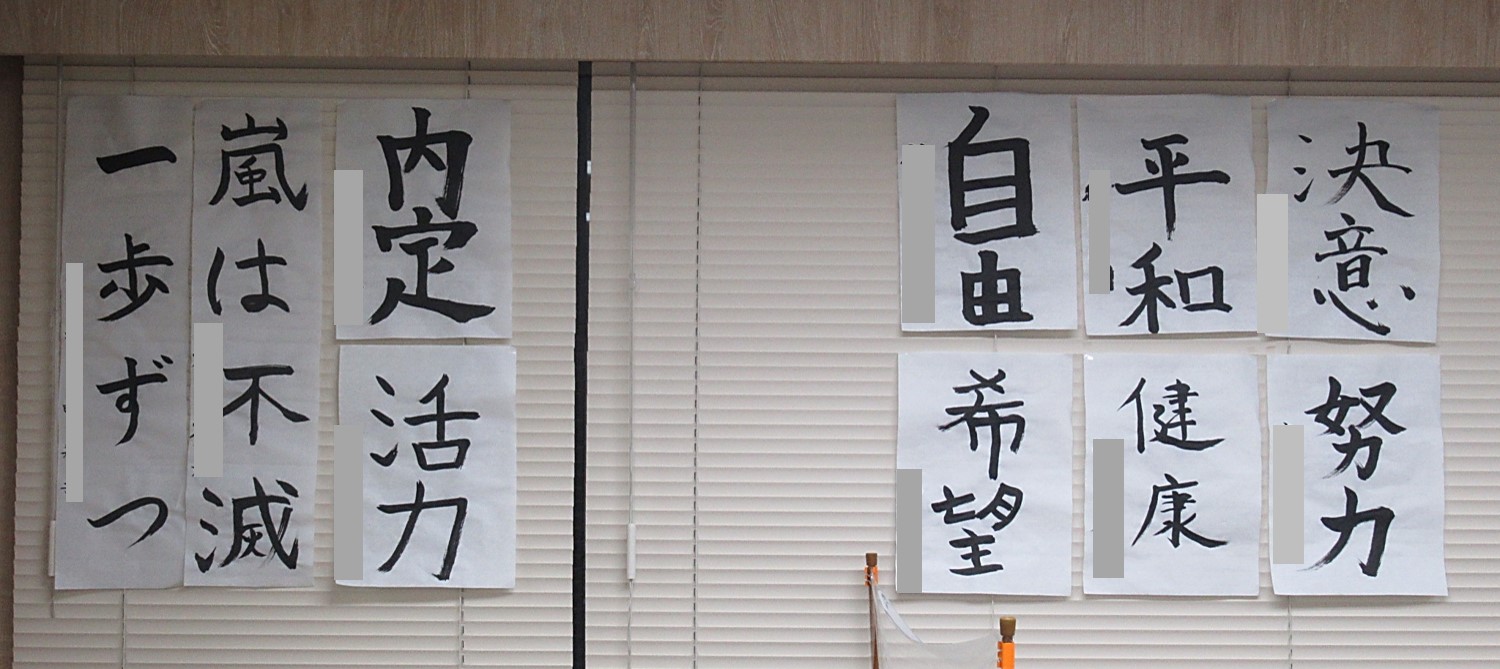 決意
努力
平和
健康
自由
希望
内定
活力
嵐は不滅
一歩ずつ